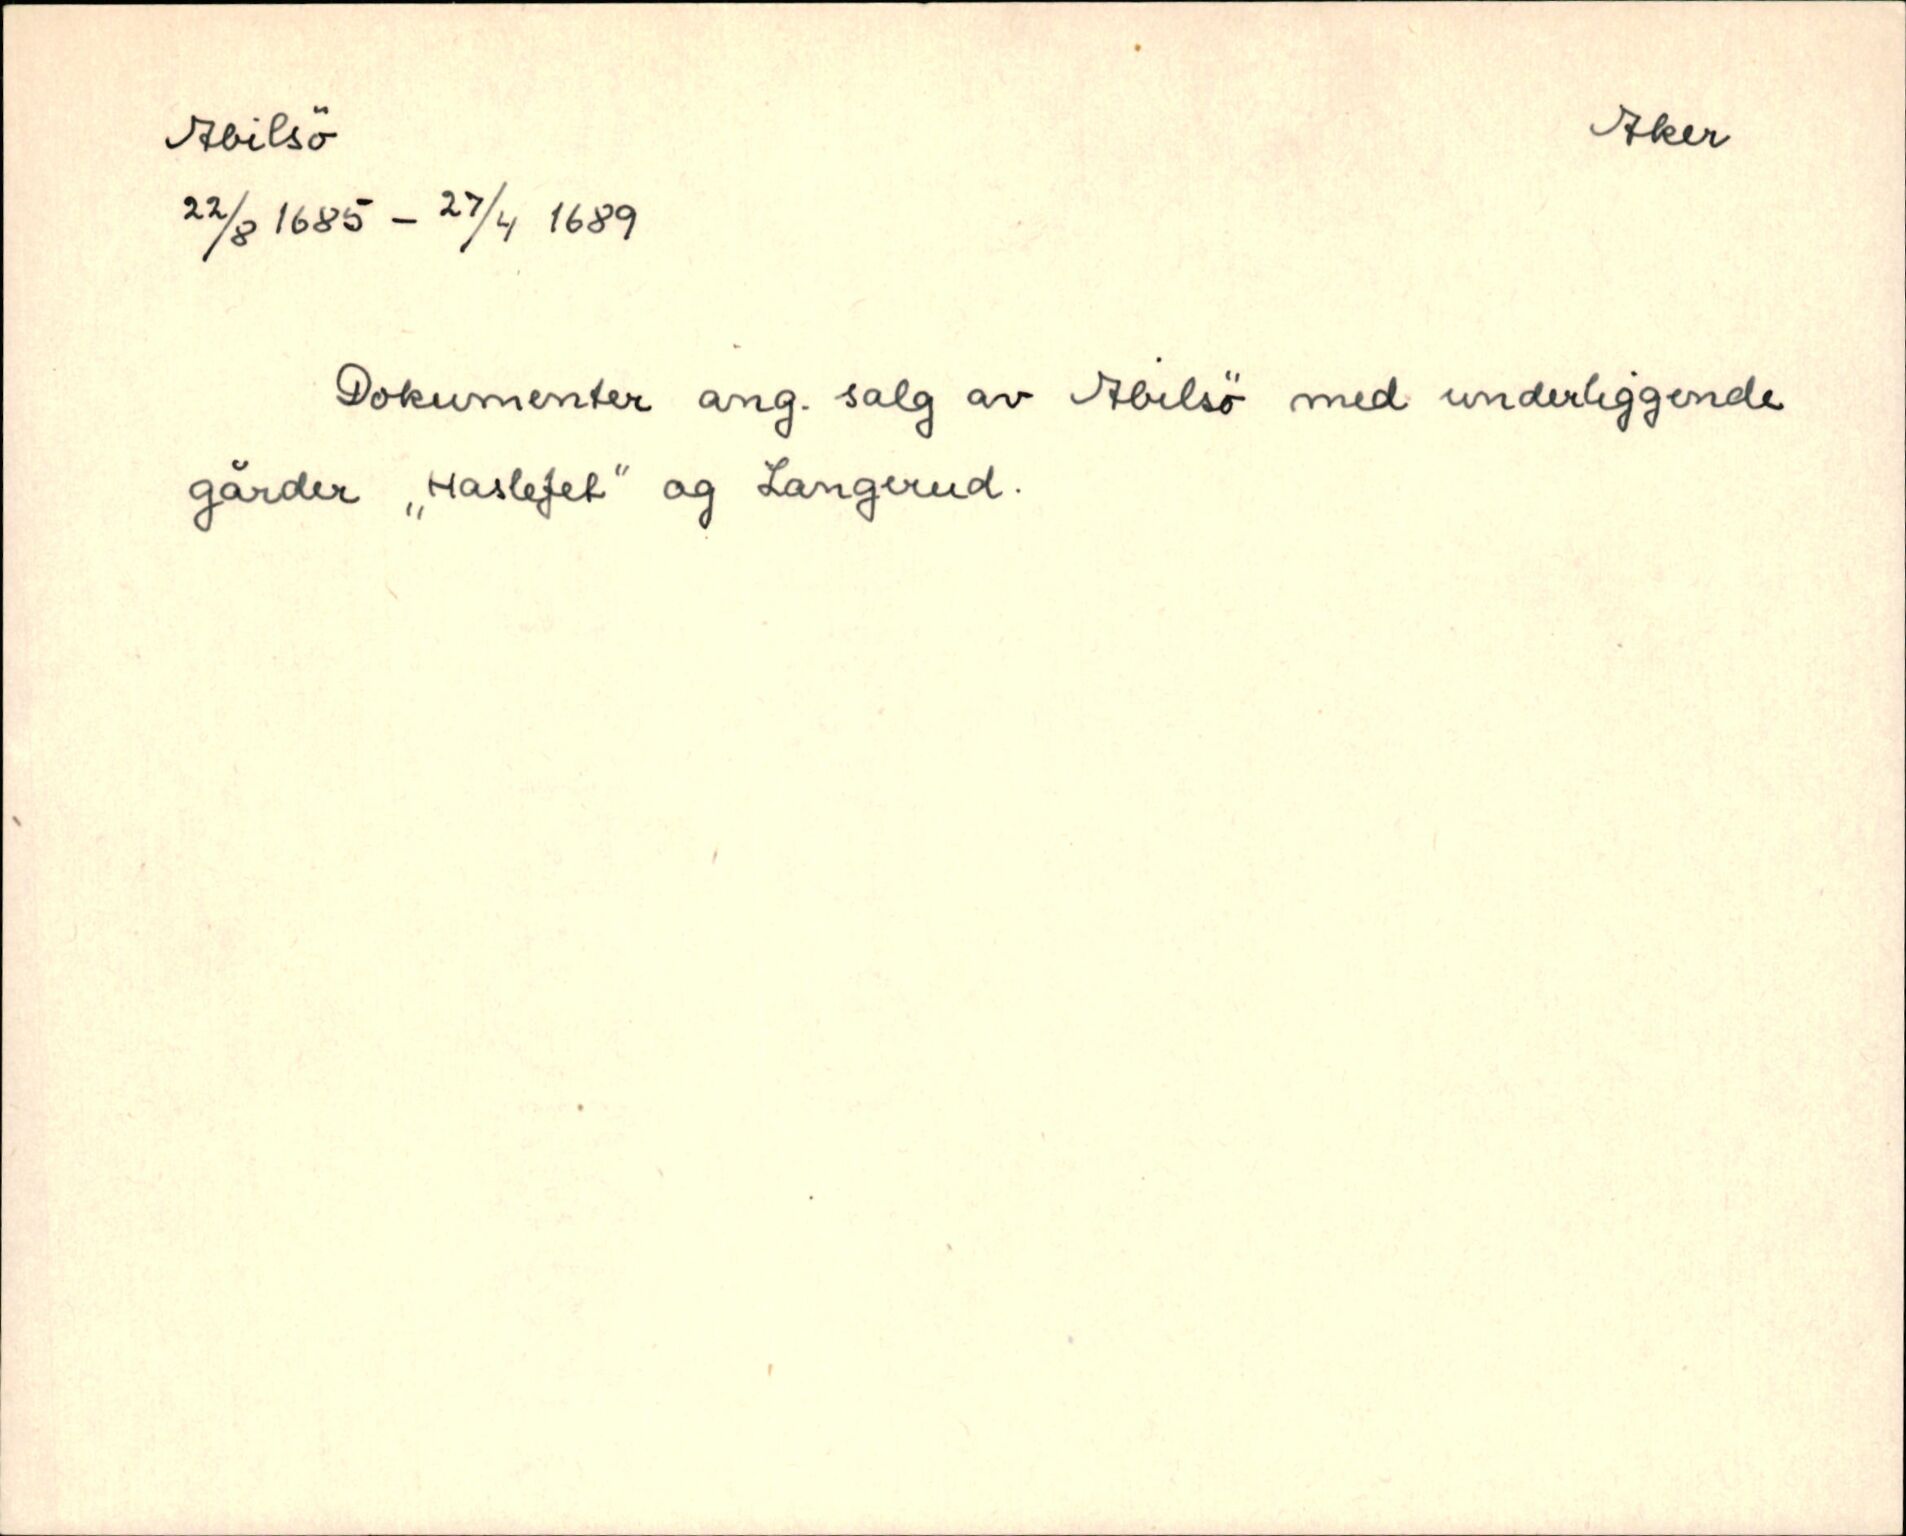 Abilsö Aker
22/8 1685 – 27/4 1689
Dokumenter ang. salg av Abilsö med underliggende
gårder „Haslefet" og Langerud.